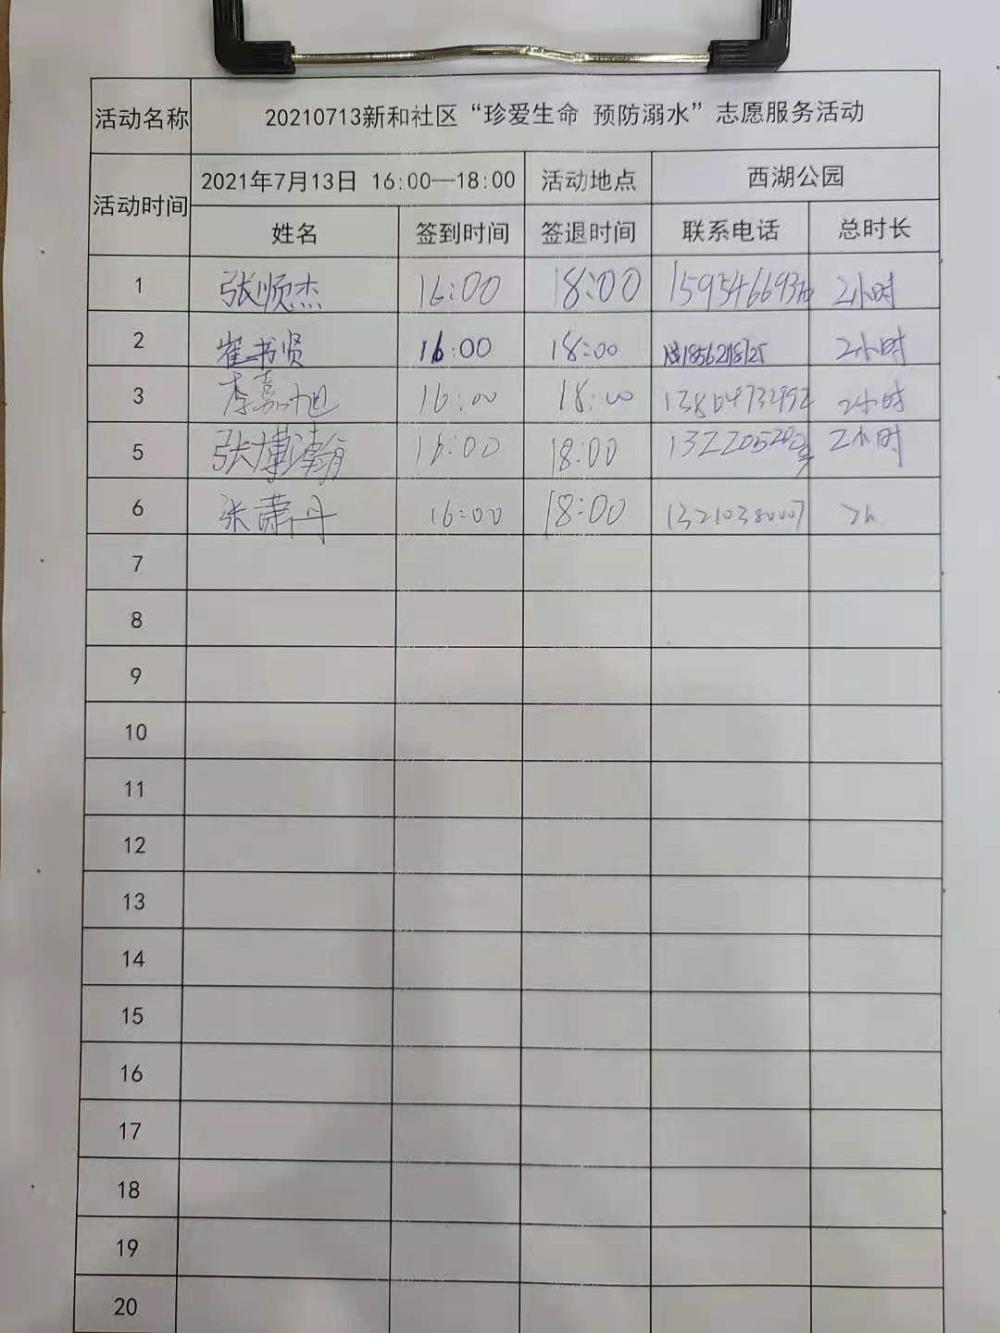 活动名称 20210713新和社区“珍爱生命 预防溺水”志愿服务活动
活动时间 2021年7月13日 16:00—18:00 活动地点 西湖公园
姓名 签到时间 签退时间 联系电话 总时长
1 张顺杰 16:00 18:00 2小时
2 崔书贤 16:00 18:00 2小时
3 李嘉旭 16:00 18:00 2小时
5 张博瀚 16:00 18:00 2小时
6 张萧丹 16:00 18:00 13210380007 2h
7
8
9
10
11
12
13
14
15
16
17
18
19
20